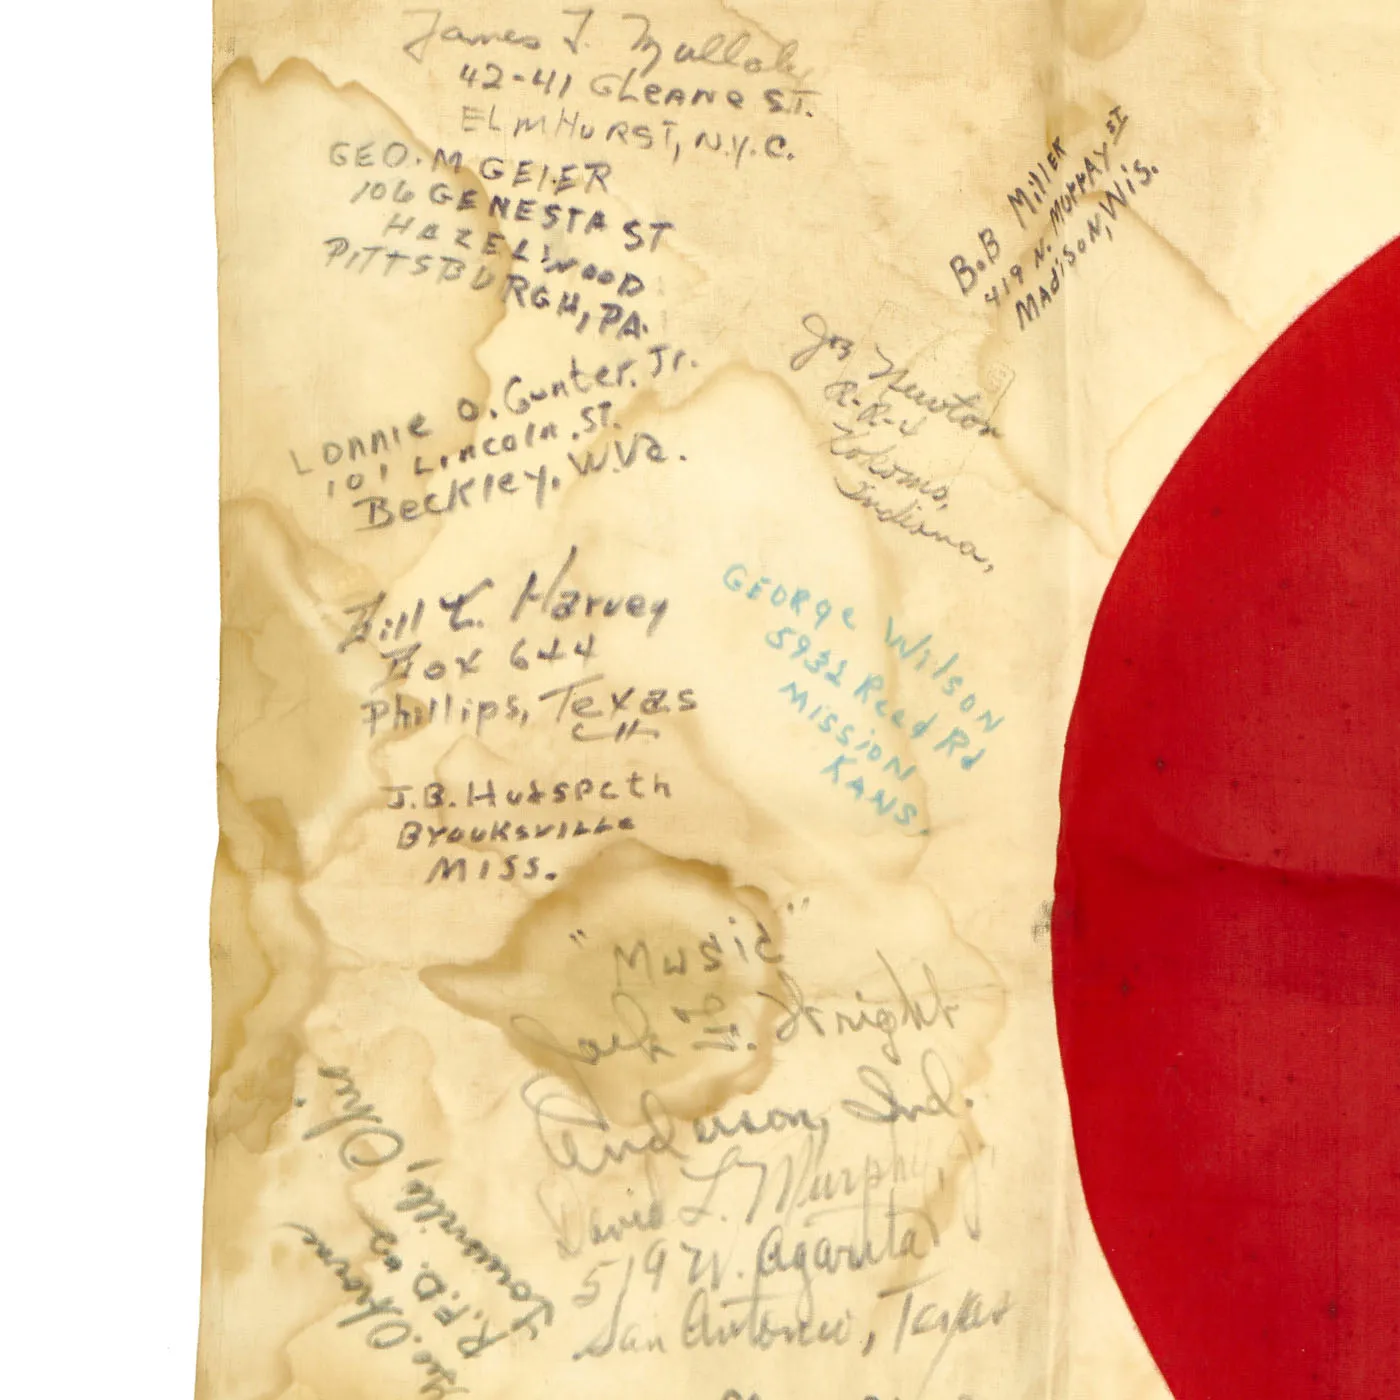 James J.
42-41 GLEANE ST.
ELMHURST, N.Y.C.
GEO. M GEIER
106 GENESTA ST
HAZELWOOD
PITTSBURGH, PA.
BOB MillER
419 N. MURRAY ST
MADiSON, Wis.
LONNIE O. Gunter, Jr.
101 Lincoln ST.
Beckley, W.Va.
Joe Newton
R-R-4
Kokomo,
Indiana,
Bill L. Harvey
Box 644
Phillips, Texas
GEORGE WilSON
5932 Reed Rd
MiSSiON
KANS.
J.B. Hudspeth
Brooksville
MISS.
"Music"
Jack I. Wright
Anderson, Ind.
David L. Murphy, Jr
519 W. Agarita
San Antonio, Texas
Geo.
R.F.D. #2
Ohio